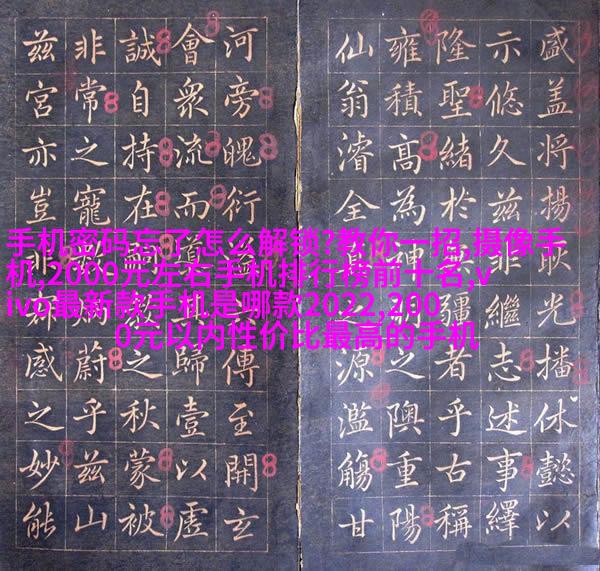 盛盖将揚耿光播休懿以
示悠久茲繼志述事繹
隆聖緒於疆者乎古稱
雍積高為之隩重陽
仙翁濬全源濫觴甘
河旁魄衍傳至開玄
會眾流而歸壹以虛
誠自持在之秋蒙被
非常之寵蔚乎茲山
茲宮亦豈非感之妙能
手机密码忘了怎么解锁?教你一招,摄像手
机,2000元左右手机排行榜前十名,v
ivo最新款手机是哪款2022,200
0元以内性价比最高的手机